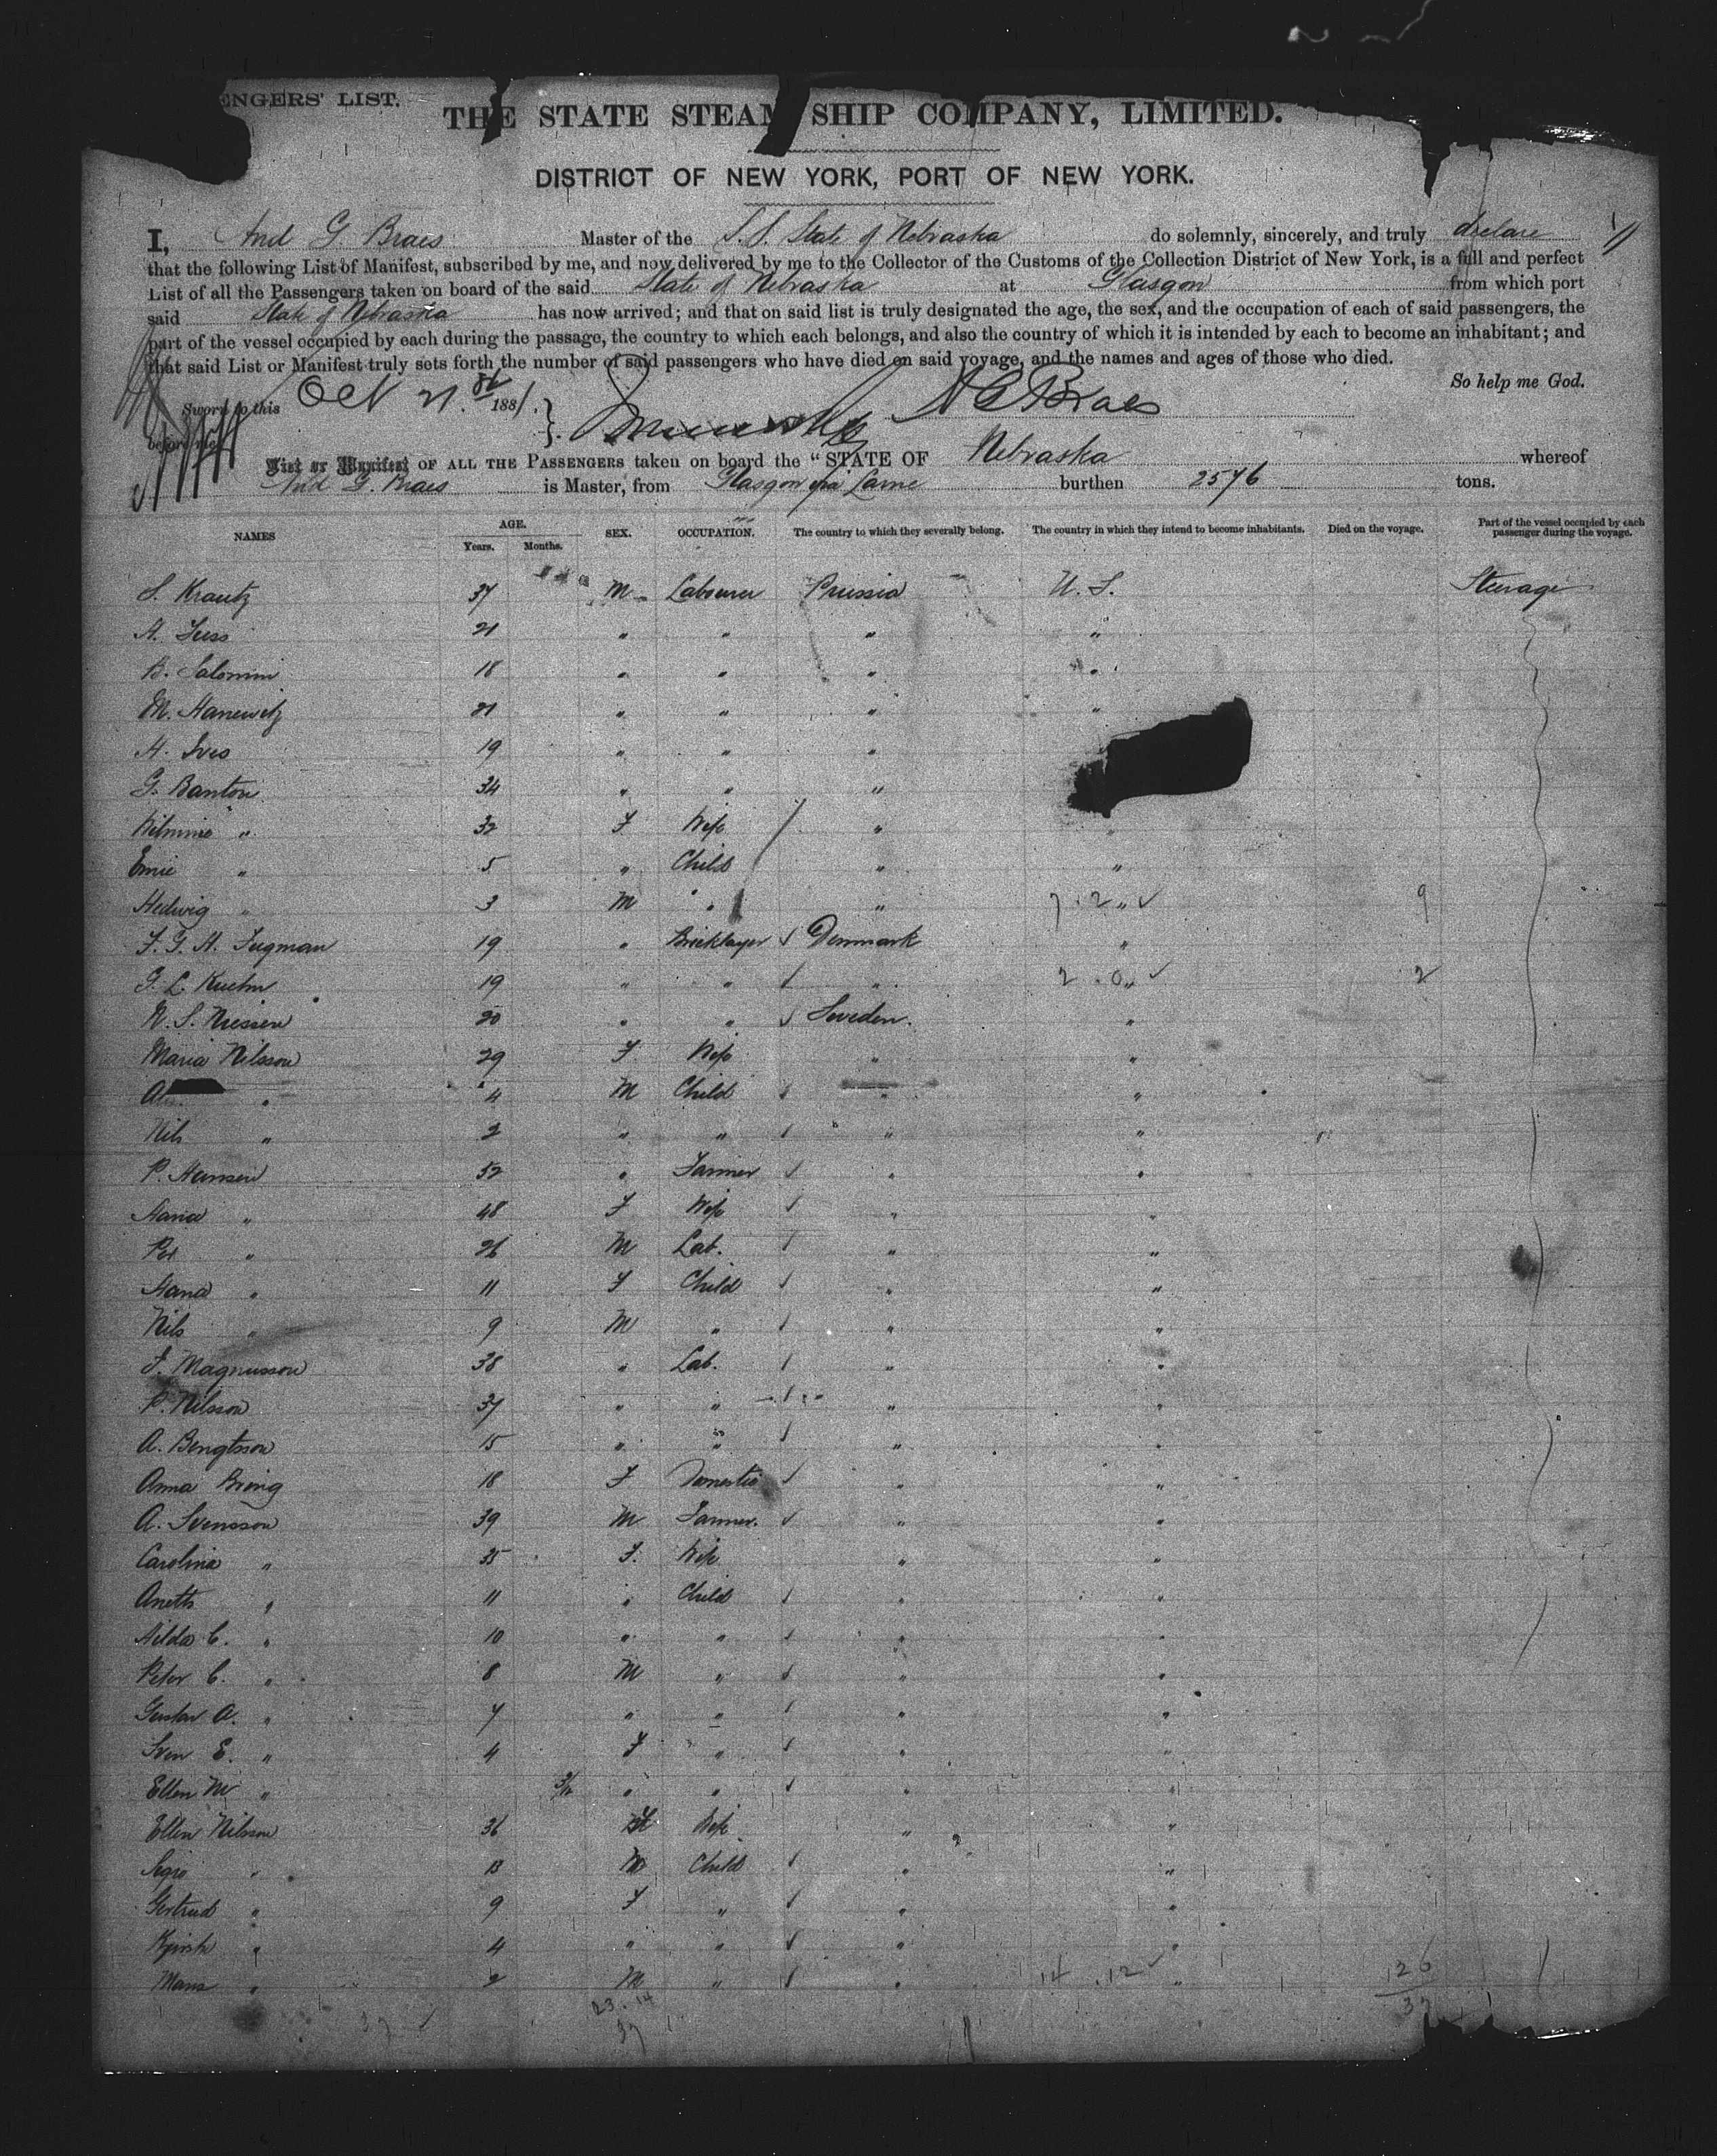 ENGERS' LIST.
THE STATE STEAM SHIP COMPANY, LIMITED.
DISTRICT OF NEW YORK, PORT OF NEW YORK.
I, And G Braes Master of the S.S. State of Nebraska do solemnly, sincerely, and truly declare
that the following List of Manifest, subscribed by me, and now delivered by me to the Collector of the Customs of the Collection District of New York, is a full and perfect
List of all the Passengers taken on board of the said State of Nebraska at Glasgow from which port
said State of Nebraska has now arrived; and that on said list is truly designated the age, the sex, and the occupation of each of said passengers, the
part of the vessel occupied by each during the passage, the country to which each belongs, and also the country of which it is intended by each to become an inhabitant; and
that said List or Manifest truly sets forth the number of said passengers who have died on said voyage, and the names and ages of those who died.
So help me God.
Sworn to this Oct 21st 1881. A G Braes
before me
List or Manifest OF ALL THE PASSENGERS taken on board the "STATE OF Nebraska whereof
And G. Braes is Master, from Glasgow via Larne burthen 2576 tons.
NAMES AGE. Years. Months. SEX. OCCUPATION. The country to which they severally belong. The country in which they intend to become inhabitants. Died on the voyage. Part of the vessel occupied by each passenger during the voyage.
S. Krautz 37 M Labourer Prussia U.S. Steerage
A. 21 " " " "
B. Salomin 18 " " " "
M. Hanewitz 21 " " " "
H. Ives 19 " " "
G. Banton 34 " " "
" 32 F Wife " "
Emie " 5 " Child " "
Hedwig " 3 M " " 7 . 2 " ✓ 9
F. G. H. Fugman 19 " Bricklayer Denmark "
G. L. Kuehn 19 " " " 2 . 0 " ✓ 2
N. S. 20 " " Sweden. "
Maria Nilsson 29 F Wife " "
" 4 M Child " "
Nils " 2 " " " "
P. Hansen 52 " Farmer " "
" 48 F Wife " "
Per " 26 M Lab. " "
Hana " 11 F Child " "
Nils " 9 M " " "
J. Magnusson 38 " Lab. " "
P. Nilsson 37 " " " "
A. Bengtsson 15 " " " "
Anna 18 F Domestic " "
A. Svensson 39 M Farmer. " "
Carolina " 35 F. Wife " "
Anette " 11 " Child " "
Hilda C. " 10 " " " "
Peter C. " 8 M " " "
Gustav A. " 7 " " " "
Sven E. " 4 F " " "
Ellen M " " " " "
Ellen Nilsson 36 F Wife " "
" 13 M Child " "
Gertrud " 9 F " " "
" 4 " " " "
Mans " 2 M " " 14 . 12 ✓ " 26
37 ✓ 23 . 14 37
37